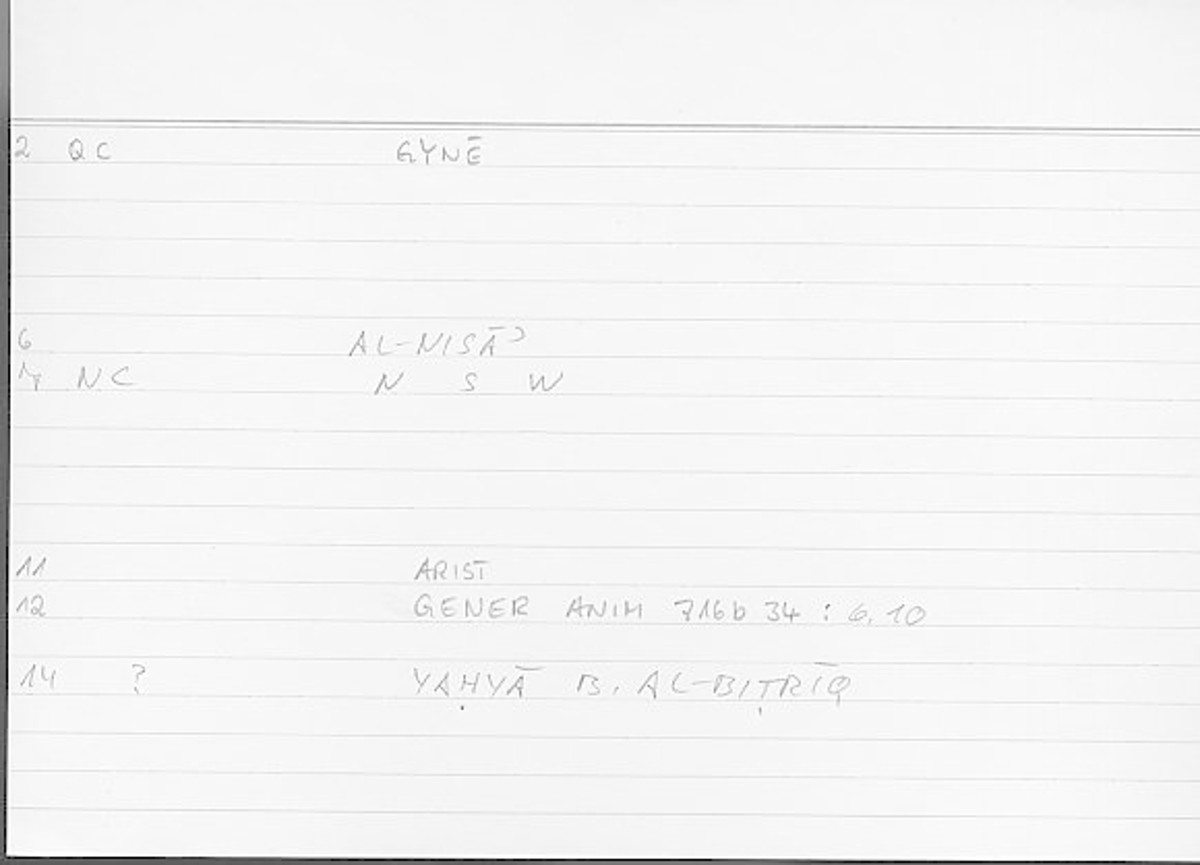 2 QC GYNĒ
6 AL-NISĀʾ
NC N S W
11 ARIST
12 GENER ANIM 716b 34 : 6,10
14 ? YAḤYĀ B. AL-BIṬRĪQ